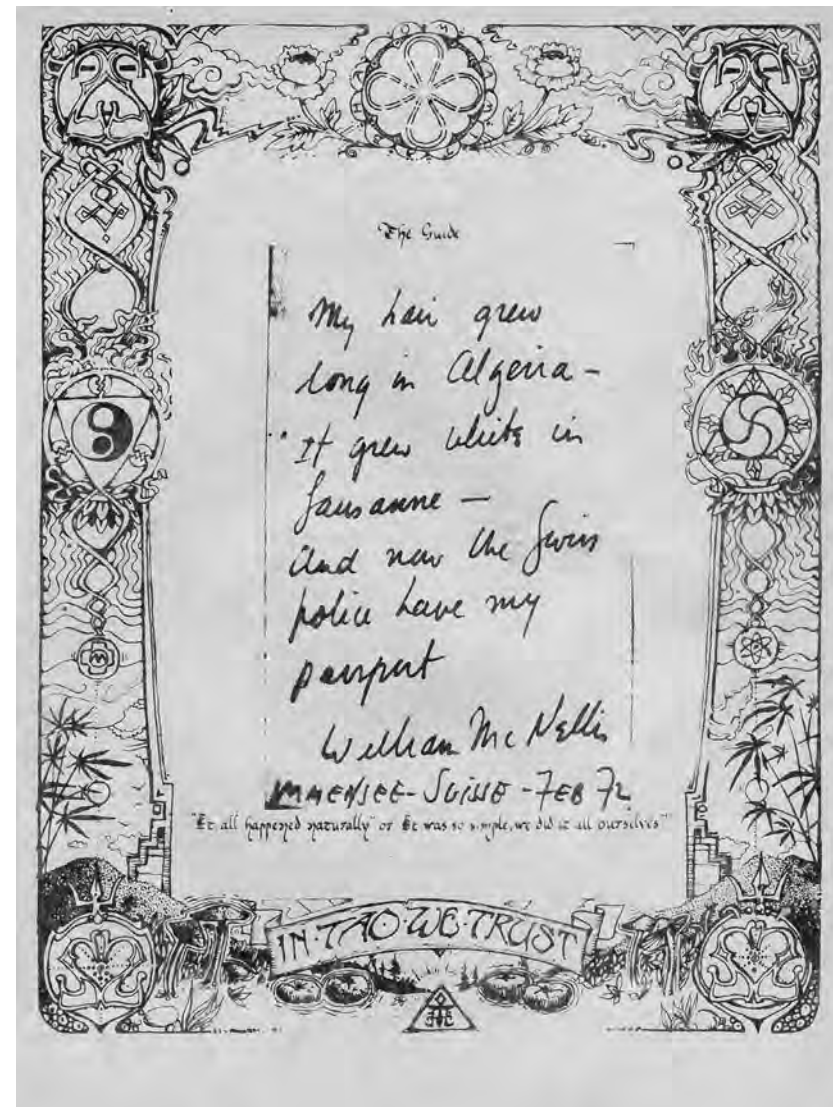 The Guide
My hair grew
long in Algeria –
It grew white in
Lausanne –
And now the Swiss
police have my
passport
William McNellis
IMMENSEE - SUISSE - FEB 72
"It all happened naturally" or "It was so simple, we did it all ourselves"
IN · TAO · WE · TRUST